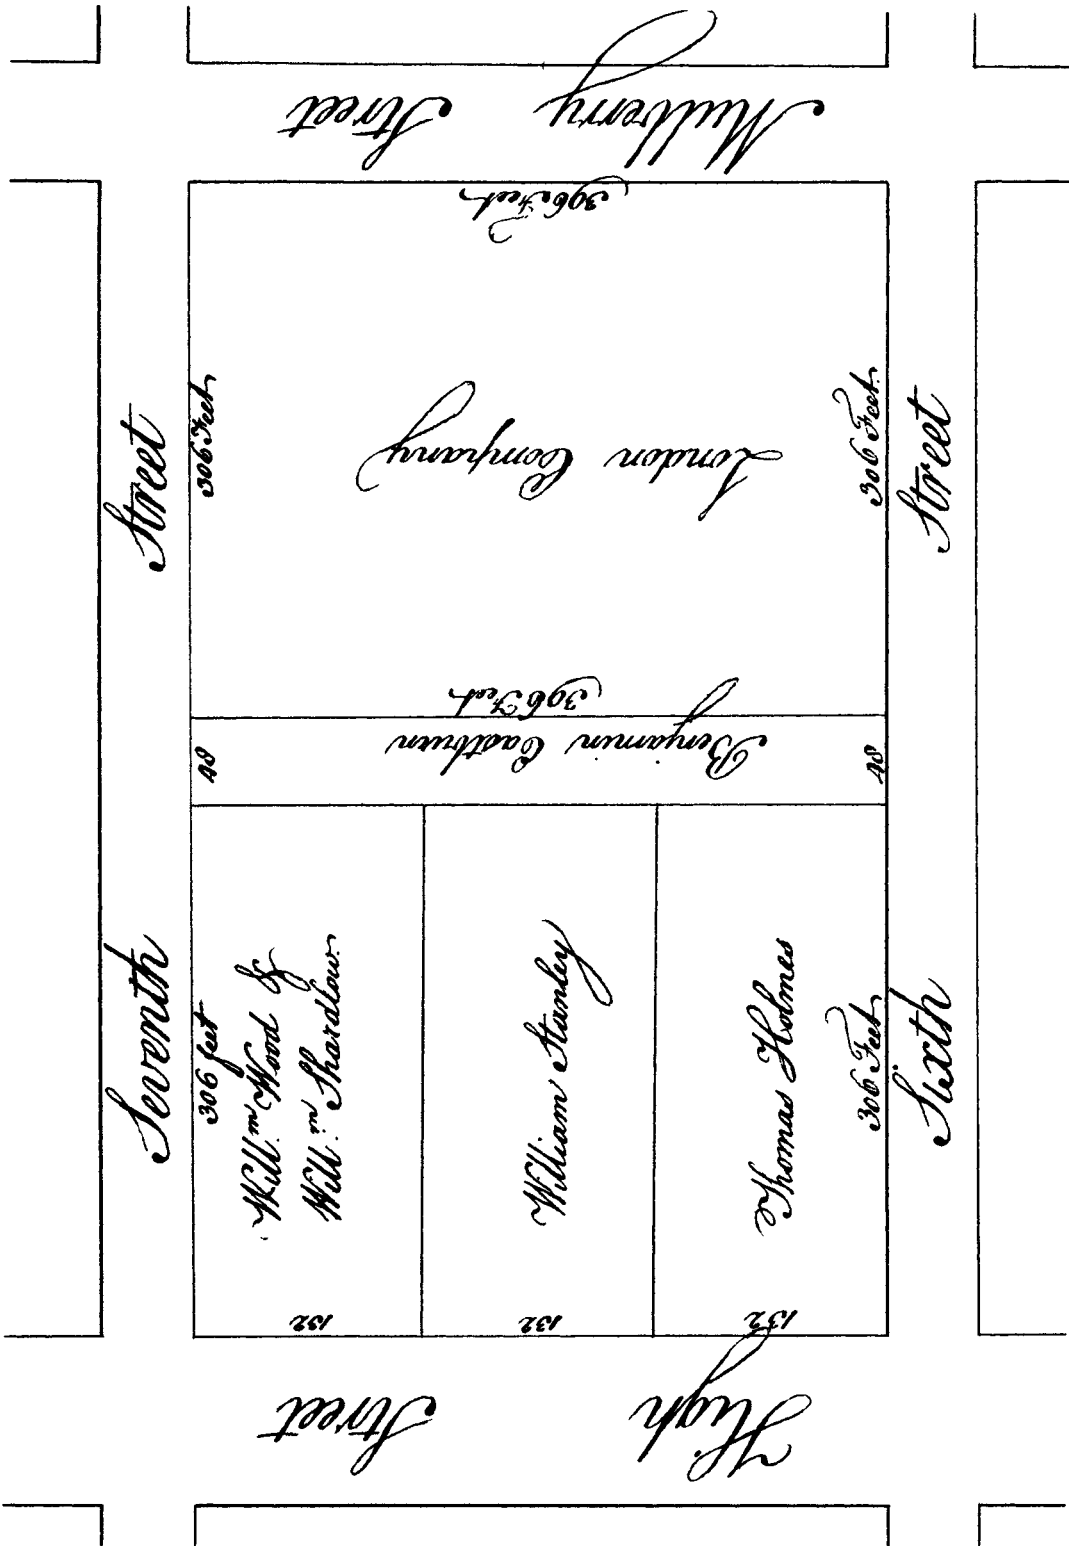 Mulberry Street
396 Feet
Seventh Street
306 Feet
London Company
306 Feet
Sixth Street
396 Feet
48
Benjamin Eastburn
48
306 feet
Will.m Wood &
Will.m Shardlow
William Stanley
Thomas Holmes
306 Feet
132
132
132
High Street